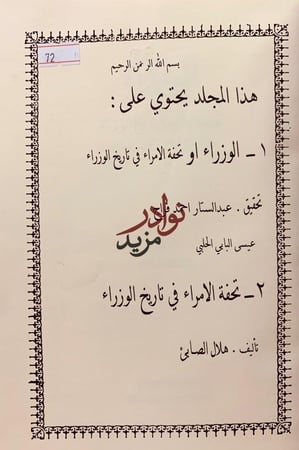 72
بسم الله الرحمن الرحيم
هذا المجلد يحتوي على :
١ ـ الوزراء او تحفة الامراء في تاريخ الوزراء
تحقيق . عبدالستار احمد
نوادر
مزيد
عيسى البابي الحلبي
٢ ـ تحفة الامراء في تاريخ الوزراء
تأليف . هلال الصابئ